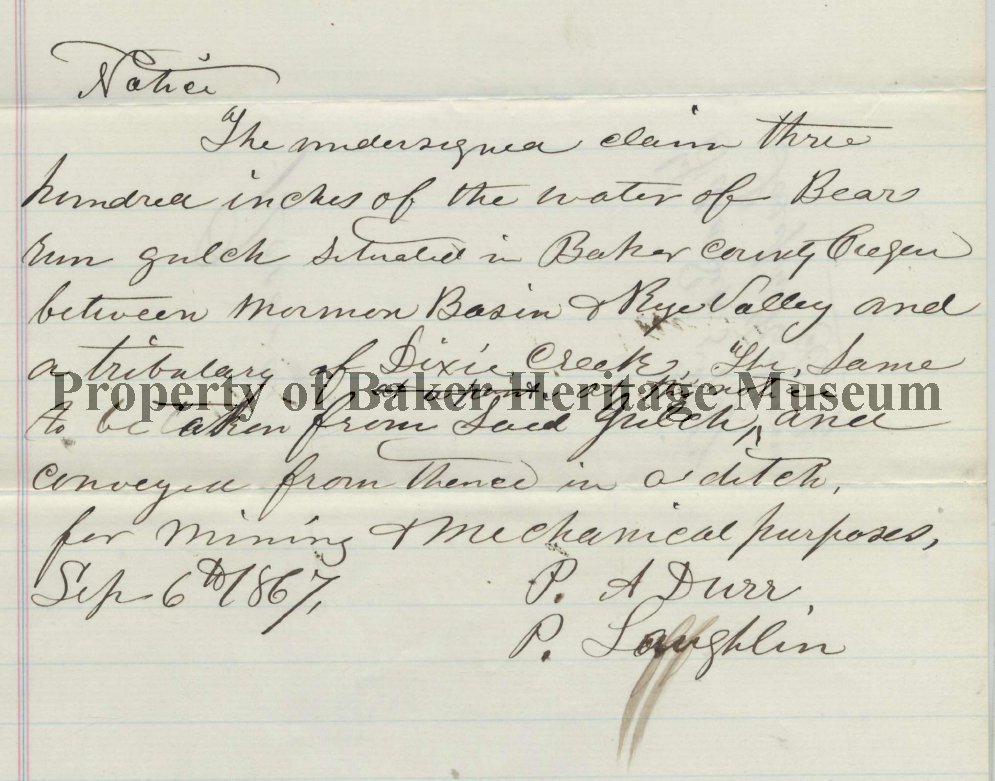 Notice
The undersigned claim three
hundred inches of the water of Bear
run gulch situated in Baker County Oregon
between Mormon Basin & Rye Valley and
a tributary of Dixie Creek, The same
Property of Baker Heritage Museum
at a point at the
to be taken from Said Gulch, and
conveyed from thence in a ditch,
for Mining & Mechanical purposes,
Sep 6th 1867,
P. A Durr
P. Laughlin